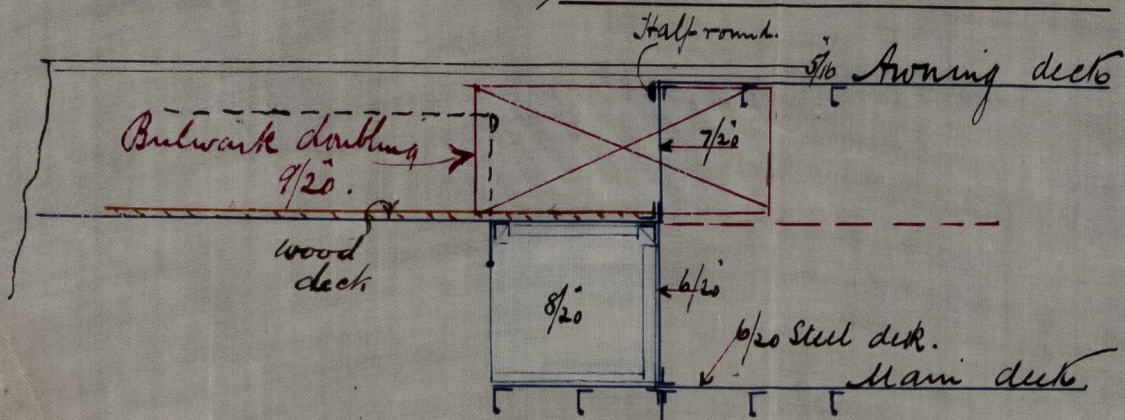 Half-round.
5/16" Awning deck
Bulwark doubling
9/20".
7/20"
wood
deck
8/20"
6/20"
6/20 Steel deck.
Main deck